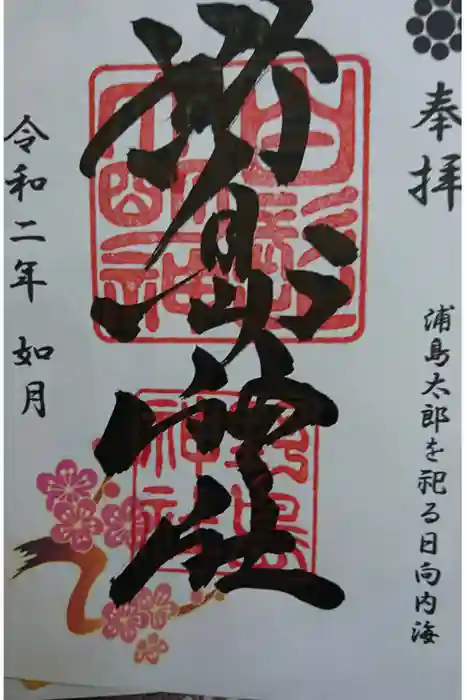 奉拝
浦島太郎を祀る日向内海
野島神社
野島
神社
令和二年 如月